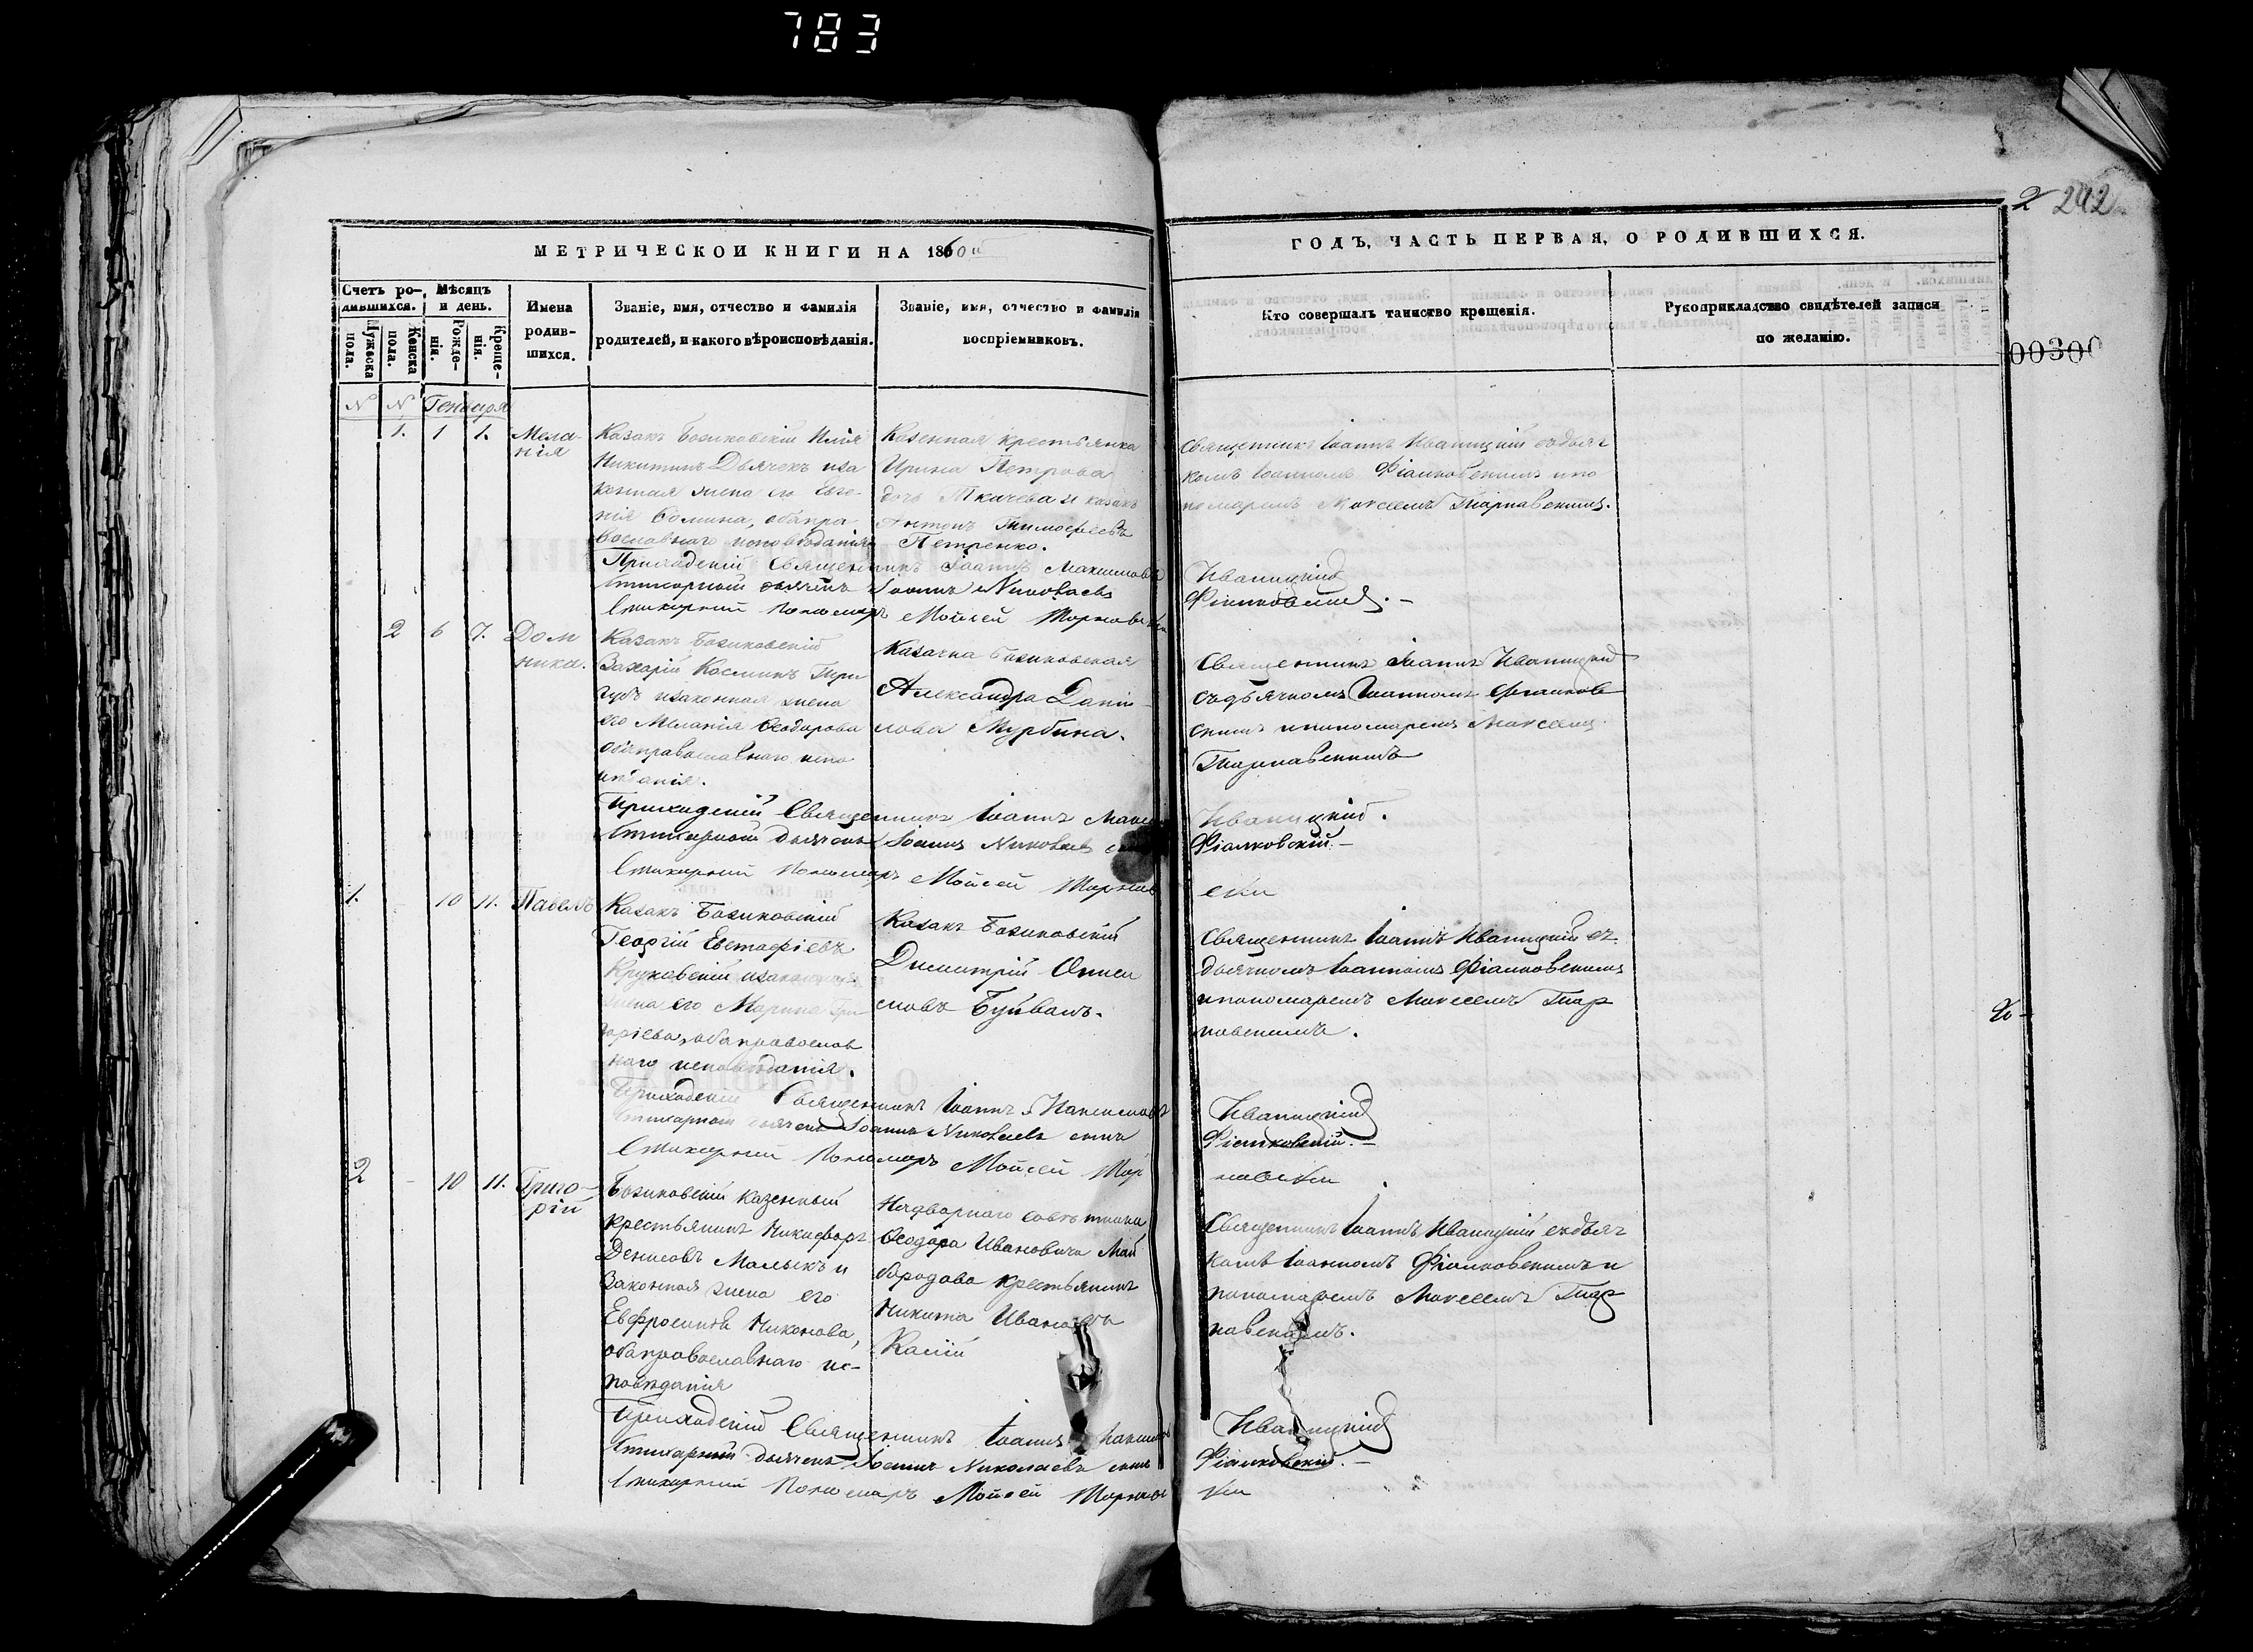 783
2 292
МЕТРИЧЕСКОЙ КНИГИ НА 1860й
ГОДЪ, ЧАСТЬ ПЕРВАЯ, О РОДИВШИХСЯ.
00300
Счетъ ро-
дившихся.
Мѣсяцъ
и день.
Мужеска
пола.
Женска
пола.
Рожде-
нія.
Креще-
нія.
Имена
родив-
шихся.
Званіе, имя, отчество и фамилія
родителей, и какого вѣроисповѣданія.
Званіе, имя, отчество и фамилія
воспріемниковъ.
Кто совершалъ таинство крещенія.
Рукоприкладство свидѣтелей записи
по желанію.
N N Генваря
1. 1 1.
Мела-
нія
Казакъ Илія
Никитинъ Дьячекъ и за
конная жена его Евге-
нія Ѳомина, оба пра
вославнаго исповѣданія
Казенная крестьянка
Ирина Петрова
дочь Ткачева и казакъ
Антонъ Тимофеевъ
Петренко.
Священникъ Іоаннъ Иваницкій съ дьяч
комъ Іоанномъ Фіалковскимъ и по
номаремъ Моисеемъ Тарнавскимъ.
Приходскій Священникъ Іоаннъ Максимовъ
Иваницкій
Стихарный дьячекъ Іоаннъ Николаевъ
Фіалковскій. –
Стихарный Пономарь Мойсей
2 6 7.
Дом
ника.
Казакъ
Захарій Косминъ
и законная жена
его Меланія Ѳеодорова
оба православнаго испо
Казачка
Александра Дани-
лова Мурбина.
Священникъ Іоаннъ Иваницкій
съ дьячкомъ Іоанномъ Фіалков
скимъ и пономаремъ Моисеемъ
Тарнавскимъ
Приходскій Священникъ Іоаннъ
Иваницкій.
Стихарный дьячекъ Іоаннъ Николаевъ
Фіалковскій. –
Стихарный Пономарь Мойсей
ски
1. 10 11.
Павелъ
Казакъ
Георгій Евстафіевъ
Круковскій и законная
жена его Марина Гри-
горіева, оба православ
наго исповѣданія.
Казакъ
Димитрій Ониси
мовъ Буйвалъ.
Священникъ Іоаннъ Иваницкій съ
дьячкомъ Іоанномъ Фіалковскимъ
и пономаремъ Моисеемъ Тар
навскимъ.
Приходскій Священникъ Іоаннъ Максимовъ
Иваницкій
Стихарный дьячекъ Іоаннъ Николаевъ сынъ
Фіалковскій. –
Стихарный Пономарь Мойсей Тар
навски
2 10 11.
Григо-
рій
казенный
крестьянинъ Никифоръ
Денисовъ Малыкъ и
законная жена его
Евфросинія Никонова,
оба православнаго ис-
повѣданія
Надворнаго совѣтника
Ѳеодора Ивановича Май
бородова крестьянинъ
Никита Ивановъ
Священникъ Іоаннъ Иваницкій съ дьяч
комъ Іоанномъ Фіалковскимъ и
пономаремъ Моисеемъ Тар
навскимъ.
Приходскій Священникъ Іоаннъ
Иваницкій
Стихарный дьячекъ Іоаннъ Николаевъ сынъ
Фіалковскій. –
Стихарный Пономарь Мойсей
ски